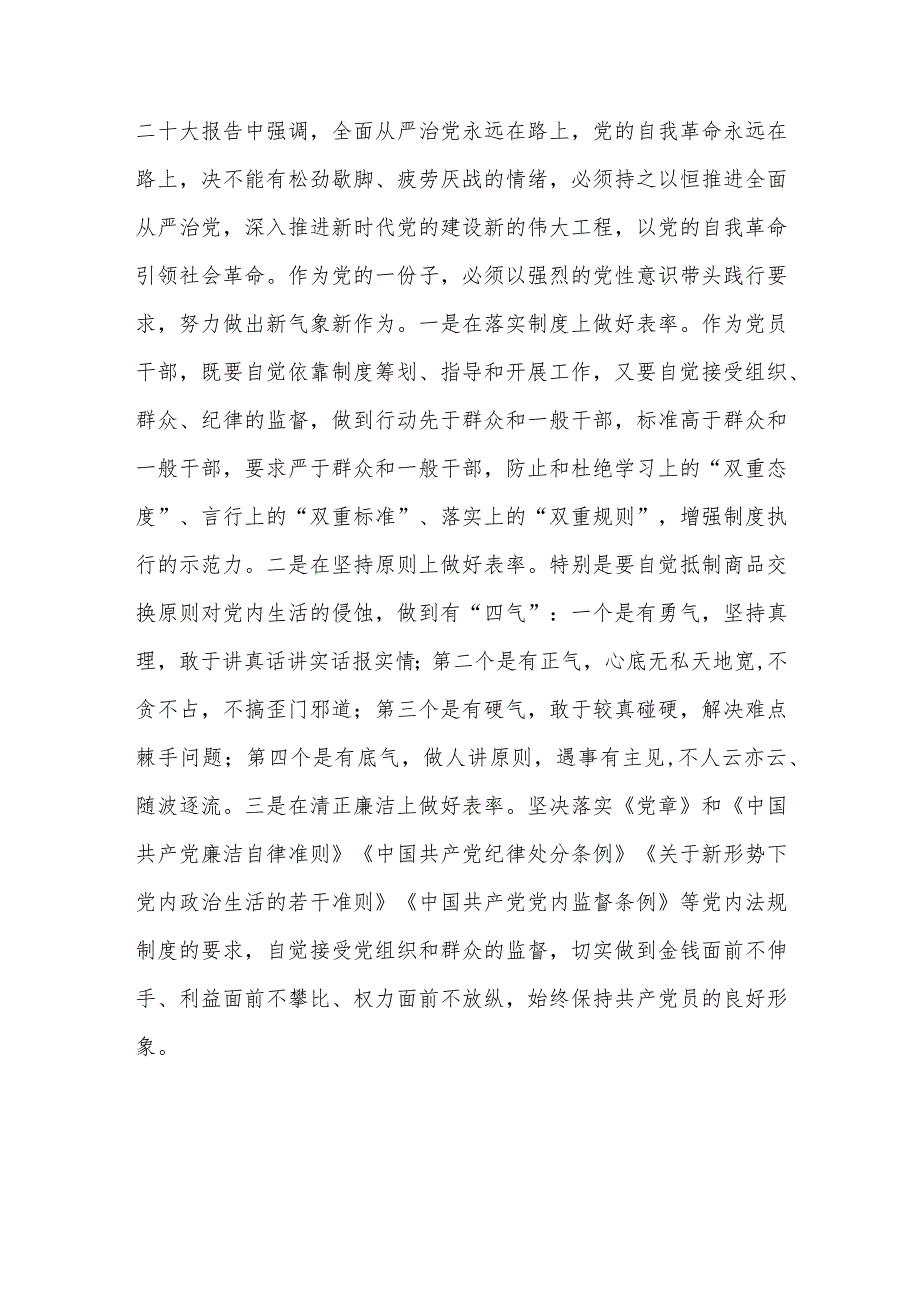 二十大报告中强调，全面从严治党永远在路上，党的自我革命永远在
路上，决不能有松劲歇脚、疲劳厌战的情绪，必须持之以恒推进全面
从严治党，深入推进新时代党的建设新的伟大工程，以党的自我革命
引领社会革命。作为党的一份子，必须以强烈的党性意识带头践行要
求，努力做出新气象新作为。一是在落实制度上做好表率。作为党员
干部，既要自觉依靠制度筹划、指导和开展工作，又要自觉接受组织、
群众、纪律的监督，做到行动先于群众和一般干部，标准高于群众和
一般干部，要求严于群众和一般干部，防止和杜绝学习上的“双重态
度”、言行上的“双重标准”、落实上的“双重规则”，增强制度执
行的示范力。二是在坚持原则上做好表率。特别是要自觉抵制商品交
换原则对党内生活的侵蚀，做到有“四气”：一个是有勇气，坚持真
理，敢于讲真话讲实话报实情；第二个是有正气，心底无私天地宽,不
贪不占，不搞歪门邪道；第三个是有硬气，敢于较真碰硬，解决难点
棘手问题；第四个是有底气，做人讲原则，遇事有主见,不人云亦云、
随波逐流。三是在清正廉洁上做好表率。坚决落实《党章》和《中国
共产党廉洁自律准则》《中国共产党纪律处分条例》《关于新形势下
党内政治生活的若干准则》《中国共产党党内监督条例》等党内法规
制度的要求，自觉接受党组织和群众的监督，切实做到金钱面前不伸
手、利益面前不攀比、权力面前不放纵，始终保持共产党员的良好形
象。